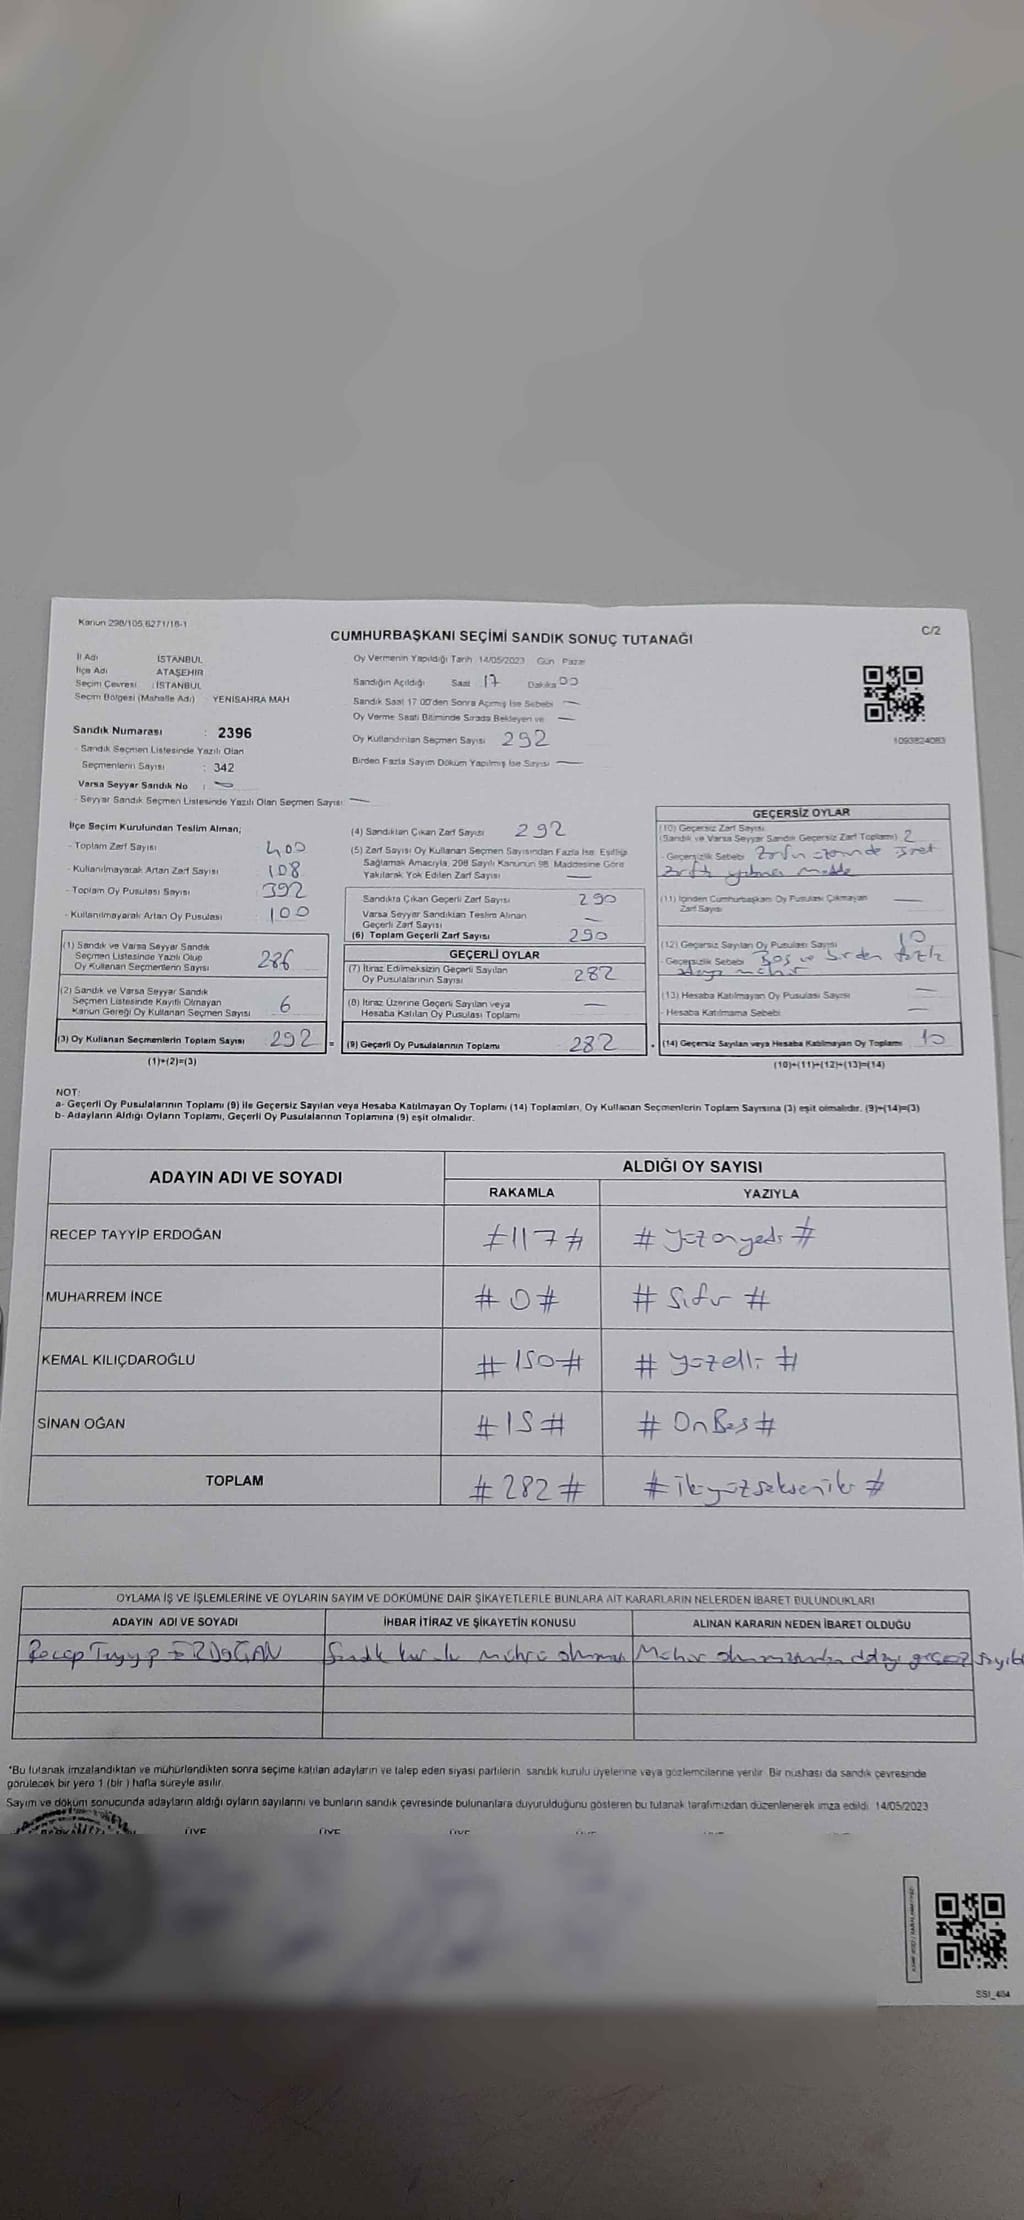 Kanun 298/105,6271/18-1
CUMHURBAŞKANI SEÇİMİ SANDIK SONUÇ TUTANAĞI
C/2
İl Adı İSTANBUL
İlçe Adı ATAŞEHİR
Seçim Çevresi : İSTANBUL
Seçim Bölgesi (Mahalle Adı) YENİSAHRA MAH
Sandık Numarası : 2396
- Sandık Seçmen Listesinde Yazılı Olan
Seçmenlerin Sayısı : 342
Varsa Seyyar Sandık No :
- Seyyar Sandık Seçmen Listesinde Yazılı Olan Seçmen Sayısı
Oy Vermenin Yapıldığı Tarih 14/05/2023 Gün Pazar
Sandığın Açıldığı Saat 17 Dakika 00
Sandık Saat 17 00'den Sonra Açılmış İse Sebebi —
Oy Verme Saati Bitiminde Sırada Bekleyen ve —
Oy Kullandırılan Seçmen Sayısı 292
Birden Fazla Sayım Döküm Yapılmış İse Sayısı —
1093824083
İlçe Seçim Kurulundan Teslim Alınan;
- Toplam Zarf Sayısı 400
- Kullanılmayarak Artan Zarf Sayısı 108
- Toplam Oy Pusulası Sayısı 392
- Kullanılmayarak Artan Oy Pusulası 100
(1) Sandık ve Varsa Seyyar Sandık
Seçmen Listesinde Yazılı Olup
Oy Kullanan Seçmenlerin Sayısı 286
(2) Sandık ve Varsa Seyyar Sandık
Seçmen Listesinde Kayıtlı Olmayan
Kanun Gereği Oy Kullanan Seçmen Sayısı 6
(3) Oy Kullanan Seçmenlerin Toplam Sayısı 292 =
(1)+(2)=(3)
(4) Sandıktan Çıkan Zarf Sayısı 292
(5) Zarf Sayısı Oy Kullanan Seçmen Sayısından Fazla İse, Eşitliği
Sağlamak Amacıyla, 298 Sayılı Kanunun 98. Maddesine Göre
Yakılarak Yok Edilen Zarf Sayısı —
Sandıkta Çıkan Geçerli Zarf Sayısı 290
Varsa Seyyar Sandıktan Teslim Alınan
Geçerli Zarf Sayısı —
(6) Toplam Geçerli Zarf Sayısı 290
GEÇERLİ OYLAR
(7) İtiraz Edilmeksizin Geçerli Sayılan
Oy Pusulalarının Sayısı 282
(8) İtiraz Üzerine Geçerli Sayılan veya
Hesaba Katılan Oy Pusulası Toplamı —
(9) Geçerli Oy Pusulalarının Toplamı 282
GEÇERSİZ OYLAR
(10) Geçersiz Zarf Sayısı
(Sandık ve Varsa Seyyar Sandık Geçersiz Zarf Toplamı) 2
- Geçersizlik Sebebi Zarfın üzerinde işaret
(11) İçinden Cumhurbaşkanı Oy Pusulası Çıkmayan
Zarf Sayısı —
(12) Geçersiz Sayılan Oy Pusulası Sayısı 10
- Geçersizlik Sebebi Boş ve birden fazla
adaya mühür
(13) Hesaba Katılmayan Oy Pusulası Sayısı —
- Hesaba Katılmama Sebebi —
(14) Geçersiz Sayılan veya Hesaba Katılmayan Oy Toplamı 10
(10)+(11)+(12)+(13)=(14)
NOT:
a- Geçerli Oy Pusulalarının Toplamı (9) ile Geçersiz Sayılan veya Hesaba Katılmayan Oy Toplamı (14) Toplamları, Oy Kullanan Seçmenlerin Toplam Sayısına (3) eşit olmalıdır. (9)+(14)=(3)
b- Adayların Aldığı Oyların Toplamı, Geçerli Oy Pusulalarının Toplamına (9) eşit olmalıdır.
ADAYIN ADI VE SOYADI ALDIĞI OY SAYISI
RAKAMLA YAZIYLA
RECEP TAYYİP ERDOĞAN #117# #yüzonyedi#
MUHARREM İNCE #0# #Sıfır#
KEMAL KILIÇDAROĞLU #150# #yüzelli#
SİNAN OĞAN #15# #OnBeş#
TOPLAM #282# #ikiyüzsekseniki#
OYLAMA İŞ VE İŞLEMLERİNE VE OYLARIN SAYIM VE DÖKÜMÜNE DAİR ŞİKAYETLERLE BUNLARA AİT KARARLARIN NELERDEN İBARET BULUNDUKLARI
ADAYIN ADI VE SOYADI İHBAR İTİRAZ VE ŞİKAYETİN KONUSU ALINAN KARARIN NEDEN İBARET OLDUĞU
Recep Tayyip ERDOĞAN Sandık kurulu mührü olmama Mühür olmamasından dolayı geçersiz
*Bu tutanak imzalandıktan ve mühürlendikten sonra seçime katılan adayların ve talep eden siyasi partilerin, sandık kurulu üyelerine veya gözlemcilerine verilir. Bir nüshası da sandık çevresinde
görülecek bir yere 1 (bir) hafta süreyle asılır.
Sayım ve döküm sonucunda adayların aldığı oyların sayılarını ve bunların sandık çevresinde bulunanlara duyurulduğunu gösteren bu tutanak tarafımızdan düzenlenerek imza edildi. 14/05/2023
ÜYE ÜYE
SSI_404